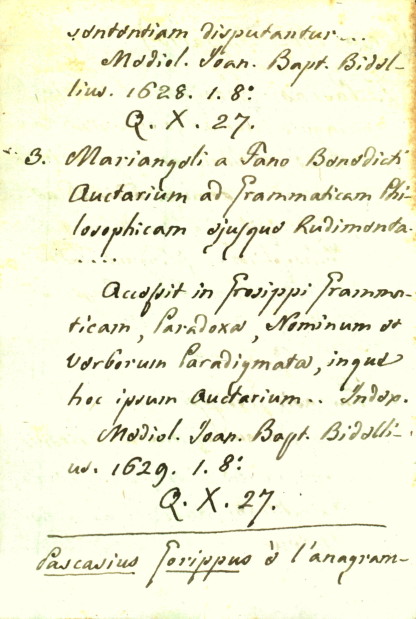 sententiam disputantur...
Mediol. Joan. Bapt. Bidel-
lius. 1628. 1. 8º
Q. X. 27.
3. Mariangeli a Fano Benedicti
Auctarium ad Grammaticam Phi-
losophicam ejusque Rudimenta.
....
Accessit in Grosippi Gramma-
ticam, Paradoxa, Nominum et
Verborum Paradigmata, inque
hoc ipsum Auctarium.. Index.
Mediol. Joan. Bapt. Bidelli-
us. 1629. 1. 8º
Q. X. 27.
Pascasius Grosippus è l'anagram-